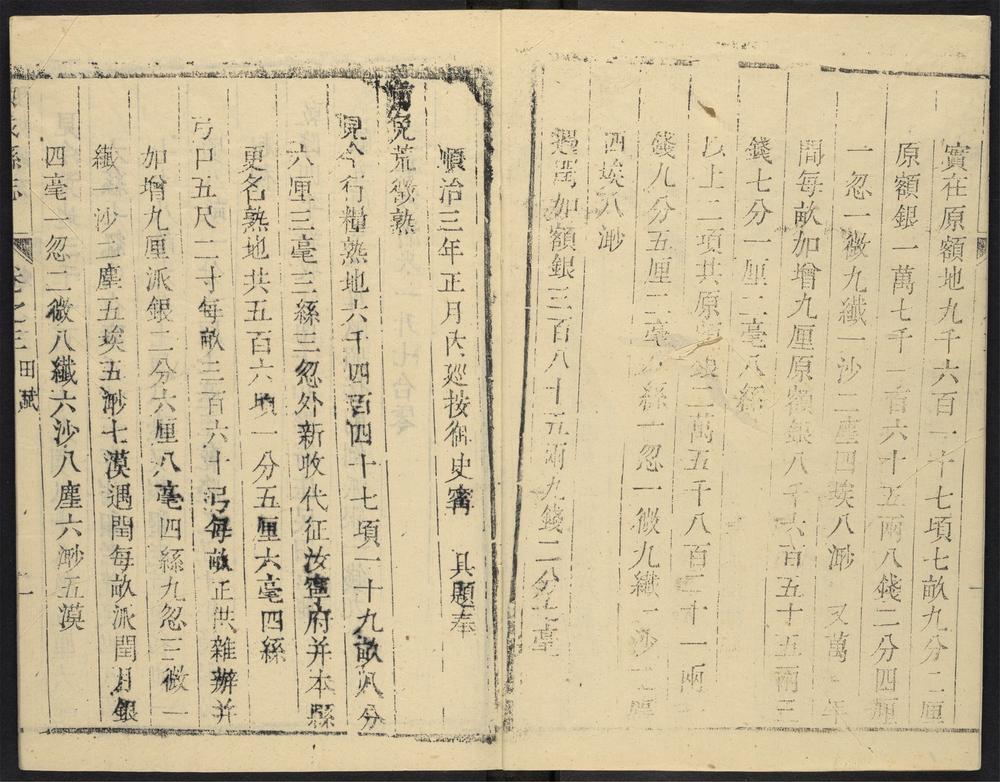 實在原額地九千六百一十七頃七畝九分二厘
原額銀一萬七千一百六十五兩八錢二分四厘
一忽一微九纖一沙二塵四埃八渺 又萬年
間每畝加增九厘原額銀八千六百五十五兩三
錢七分一厘二毫八絲
以上二項共原額銀二萬五千八百二十一兩
錢九分五厘二毫絲一忽一微九纖一沙二塵
四埃八渺
遇閏加額銀三百八十五兩九錢二分七毫
順治三年正月內巡按御史甯 具題奉
旨免荒徵熟
見今行糧熟地六千四百四十七頃一十九畝八分
六厘三毫三絲三忽外新收代征汝寧府并本縣
更名熟地共五百六頃一分五厘六毫四絲
弓口五尺二寸每畝三百六十弓每畝正供雜辦并
加增九厘派銀二分六厘八毫四絲九忽三微一
纖一沙二塵五埃五渺七漠遇閏每畝派閏月銀
四毫一忽二微八纖六沙八塵六渺五漠
縣志 卷之三 田賦 一